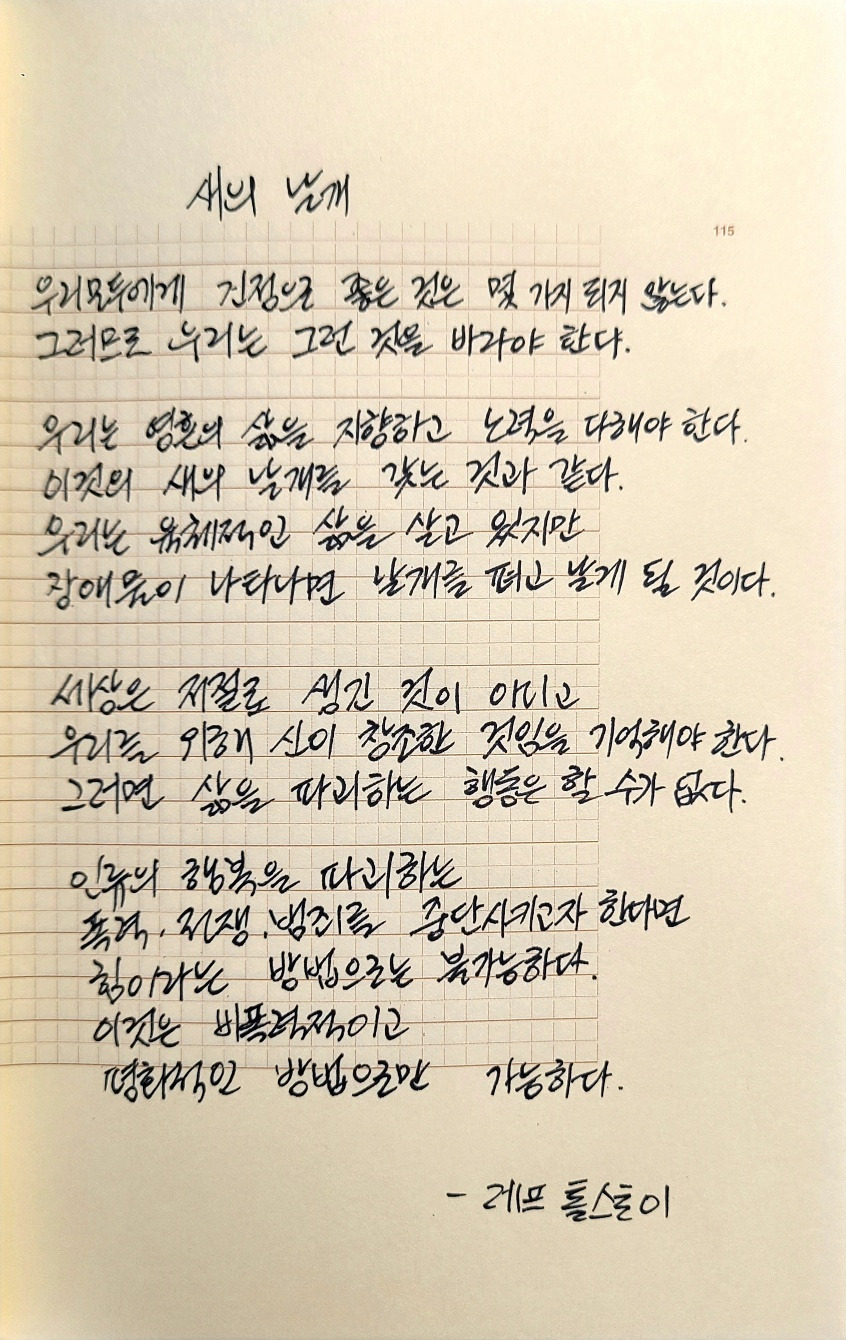 새의 날개
115
우리모두에게 진정으로 좋은 것은 몇 가지 되지 않는다.
그러므로 우리는 그런 것을 바라야 한다.
우리는 영혼의 삶을 지향하고 노력을 다해야 한다.
이것의 새의 날개를 갖는 것과 같다.
우리는 육체적인 삶을 살고 있지만
장애물이 나타나면 날개를 펴고 날게 될 것이다.
세상은 저절로 생긴 것이 아니고
우리를 위해 신이 창조한 것임을 기억해야 한다.
그러면 삶을 파괴하는 행동은 할 수가 없다.
인류의 행복을 파괴하는
폭력. 전쟁. 범죄를 중단시키고자 한다면
힘이라는 방법으로는 불가능하다.
이것은 비폭력적이고
평화적인 방법으로만 가능하다.
- 레프 톨스토이